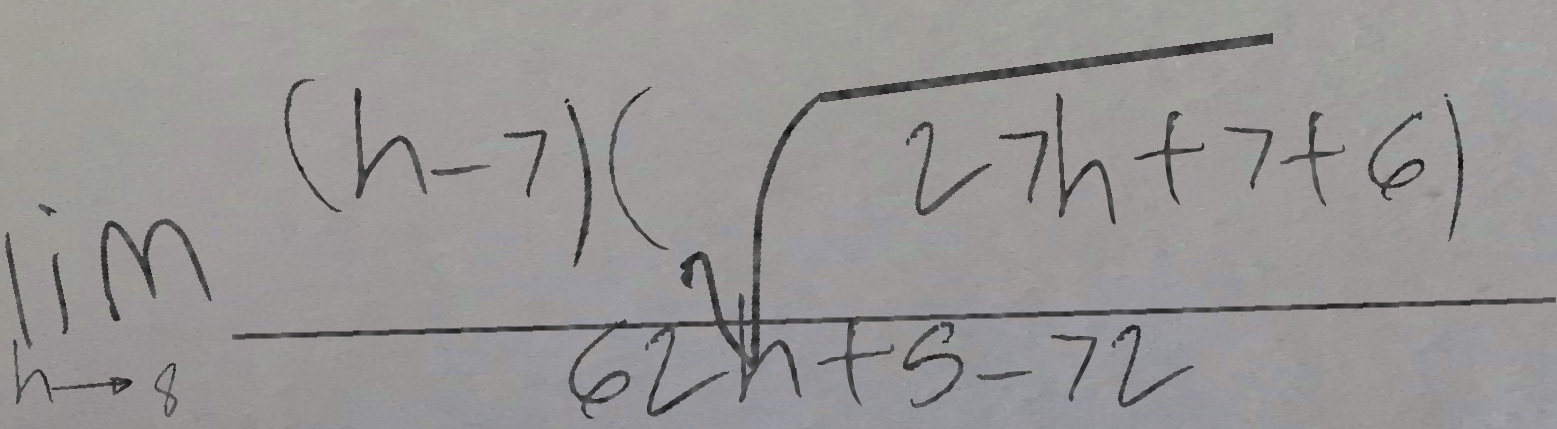 \lim_{h \to 8} \frac{(h-7)(\sqrt{27h+7}+6)}{62h+5-72}